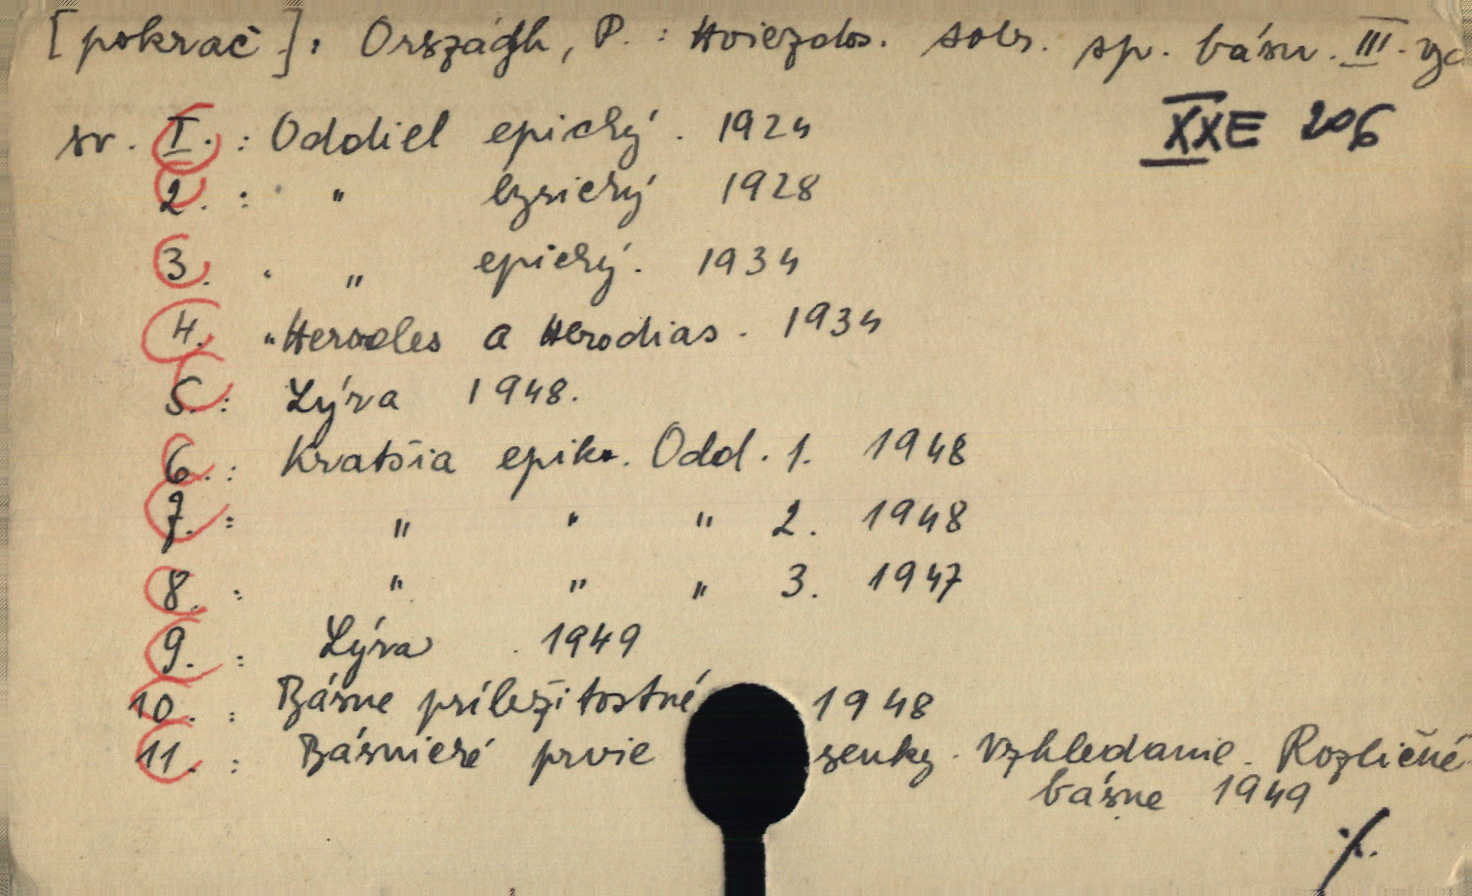 [pokrač]: Országh, P.: Hviezdos. sobr. sp. básn. III. vyd
XXE 206
sv. I. : Oddiel epický. 1924
2. : " lyrický 1928
3. " epický. 1934
4. "Herodes a Herodias. 1934
5. : Lýra 1948.
6. : Kratšia epika. Odd. 1. 1948
7. : " " " 2. 1948
8. : " " " 3. 1947
9. : Lýra 1949
10. : Básne príležitostné 1948
11. : Básnické prvie senky. Vzhledanie. Rozličné
básne 1949
./.